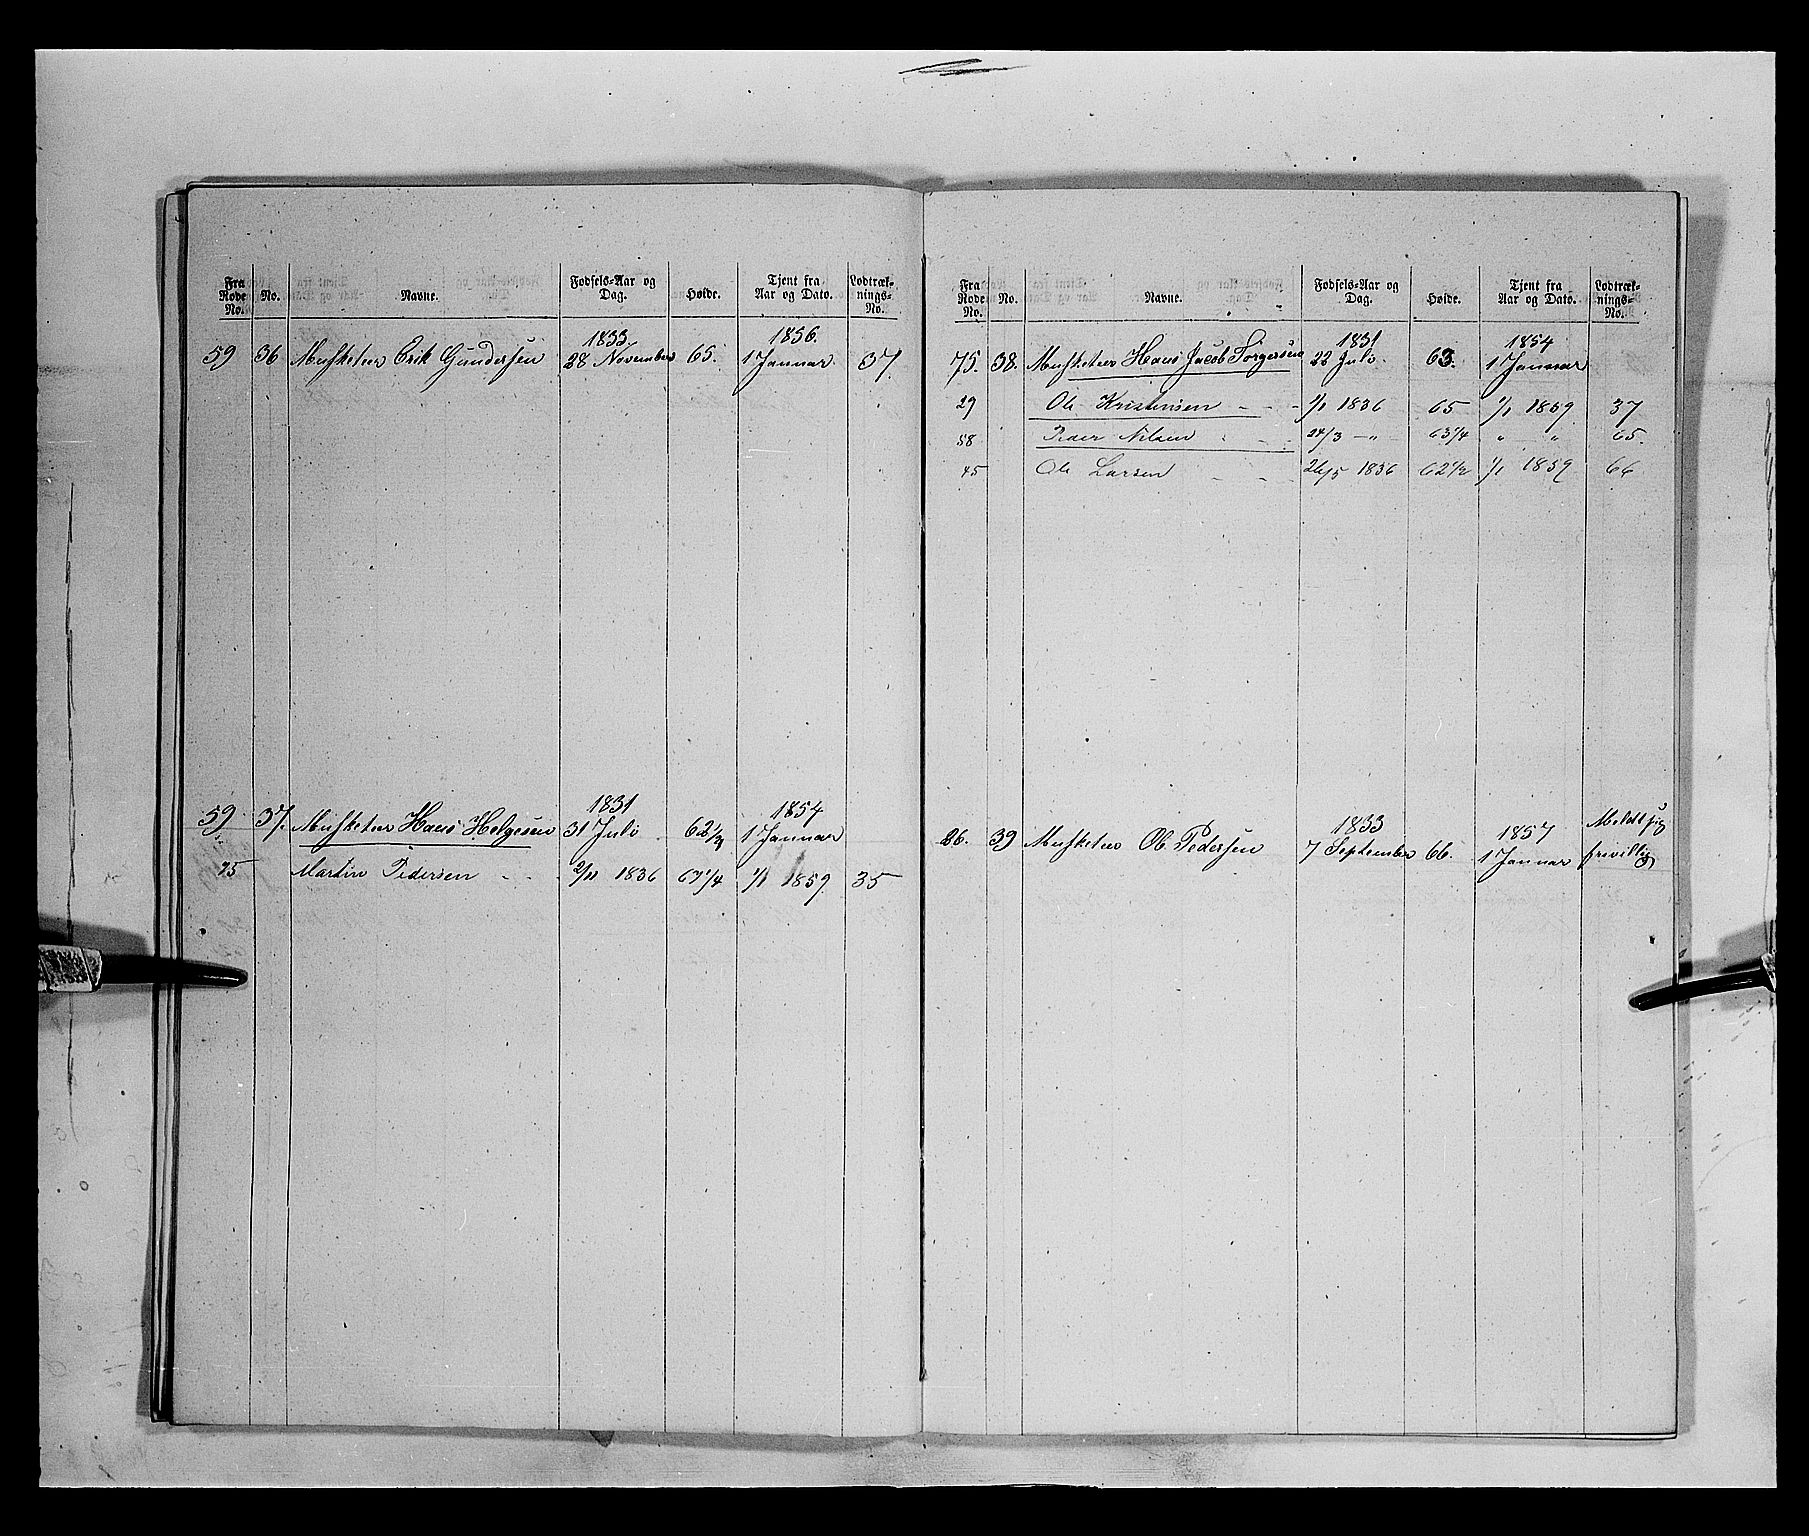 Fra Rode No. No. Navne. Fødsels-Aar og Dag. Høide. Tjent fra Aar og Dato. Lodtræk-nings-No.
1833 1856.
59 36 Musketeer Erik Gundersen 28 November 65. 1 Januar 37.
1831 1854
59 37. Musketeer Hans Helgesen 31 Juli 62 1 Januar
75 Martin Pedersen - - 2/11 1836 67 1/4 1/1 1859 35
Fra Rode No. No. Navne. Fødsels-Aar og Dag. Høide. Tjent fra Aar og Dato. Lodtræk-nings-No.
1831 1854
75. 38. Musketeer Hans Jacob Torgersen 22 Juli 63. 1 Januar
29 Ole Kristensen - - - 1/1 1836 65 1/1 1859 37
58 Peder Nilsen - - 24/3 -"- 63 1/4 " " 65.
45 Ole Larsen - - - 26/5 1836 62 1/2 1/1 1859 66
1833 1857 Meldt sig
26. 39 Musketeer Ole Pedersen 7 September 66. 1 Januar frivillig